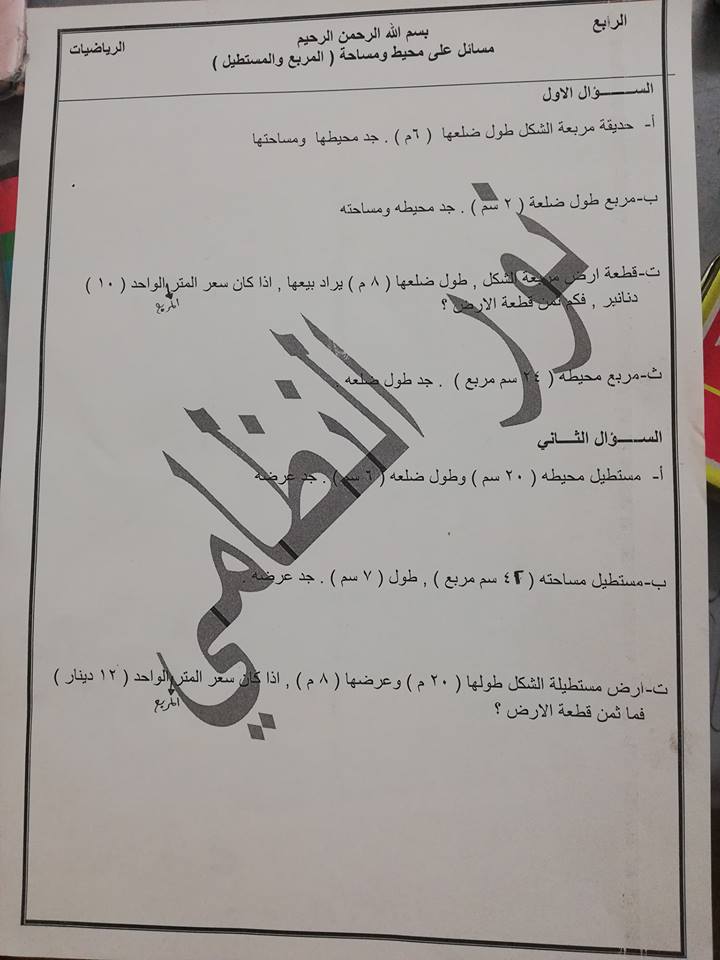 الرابع
بسم الله الرحمن الرحيم
الرياضيات
مسائل على محيط ومساحة ( المربع والمستطيل )
الســـــــؤال الاول
أ- حديقة مربعة الشكل طول ضلعها ( ٦م ) . جد محيطها ومساحتها
ب-مربع طول ضلعة ( ٢ سم ) . جد محيطه ومساحته
ت-قطعة ارض مربعة الشكل , طول ضلعها ( ٨ م ) يراد بيعها , اذا كان سعر المتر الواحد ( ١٠ )
المربع
دنانير , فكم ثمن قطعة الارض ؟
ث-مربع محيطه ( ٢٤ سم مربع ) . جد طول ضلعه .
الســـــؤال الثـــــاني
أ- مستطيل محيطه ( ٢٠ سم ) وطول ضلعه ( ٦ سم ) . جد عرضه
ب-مستطيل مساحته ( ٤٢ سم مربع ) , طول ( ٧ سم ) . جد عرضه .
ت-ارض مستطيلة الشكل طولها ( ٢٠ م ) وعرضها ( ٨ م ) , اذا كان سعر المتر الواحد ( ١٢ دينار )
المربع
فما ثمن قطعة الارض ؟
نور النظامي